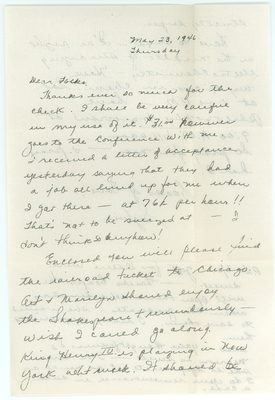 May 23, 1946
Thursday
Dear Folks,
Thanks ever so much for the
check. I shall be very careful
in my use of it. $31.00 however
goes to the Conference with me.
I received a letter of acceptance
yesterday saying that they had
a job all lined up for me when
I get there — at 76¢ per hour!!
That's not to be sneezed at — I
don't think so anyhow!
Enclosed you will please find
the railroad ticket to Chicago.
Art & Marilyn should enjoy
the Shakespeare tremendously.
Wish I could go along.
King Henry is playing in New
York next week. It should be